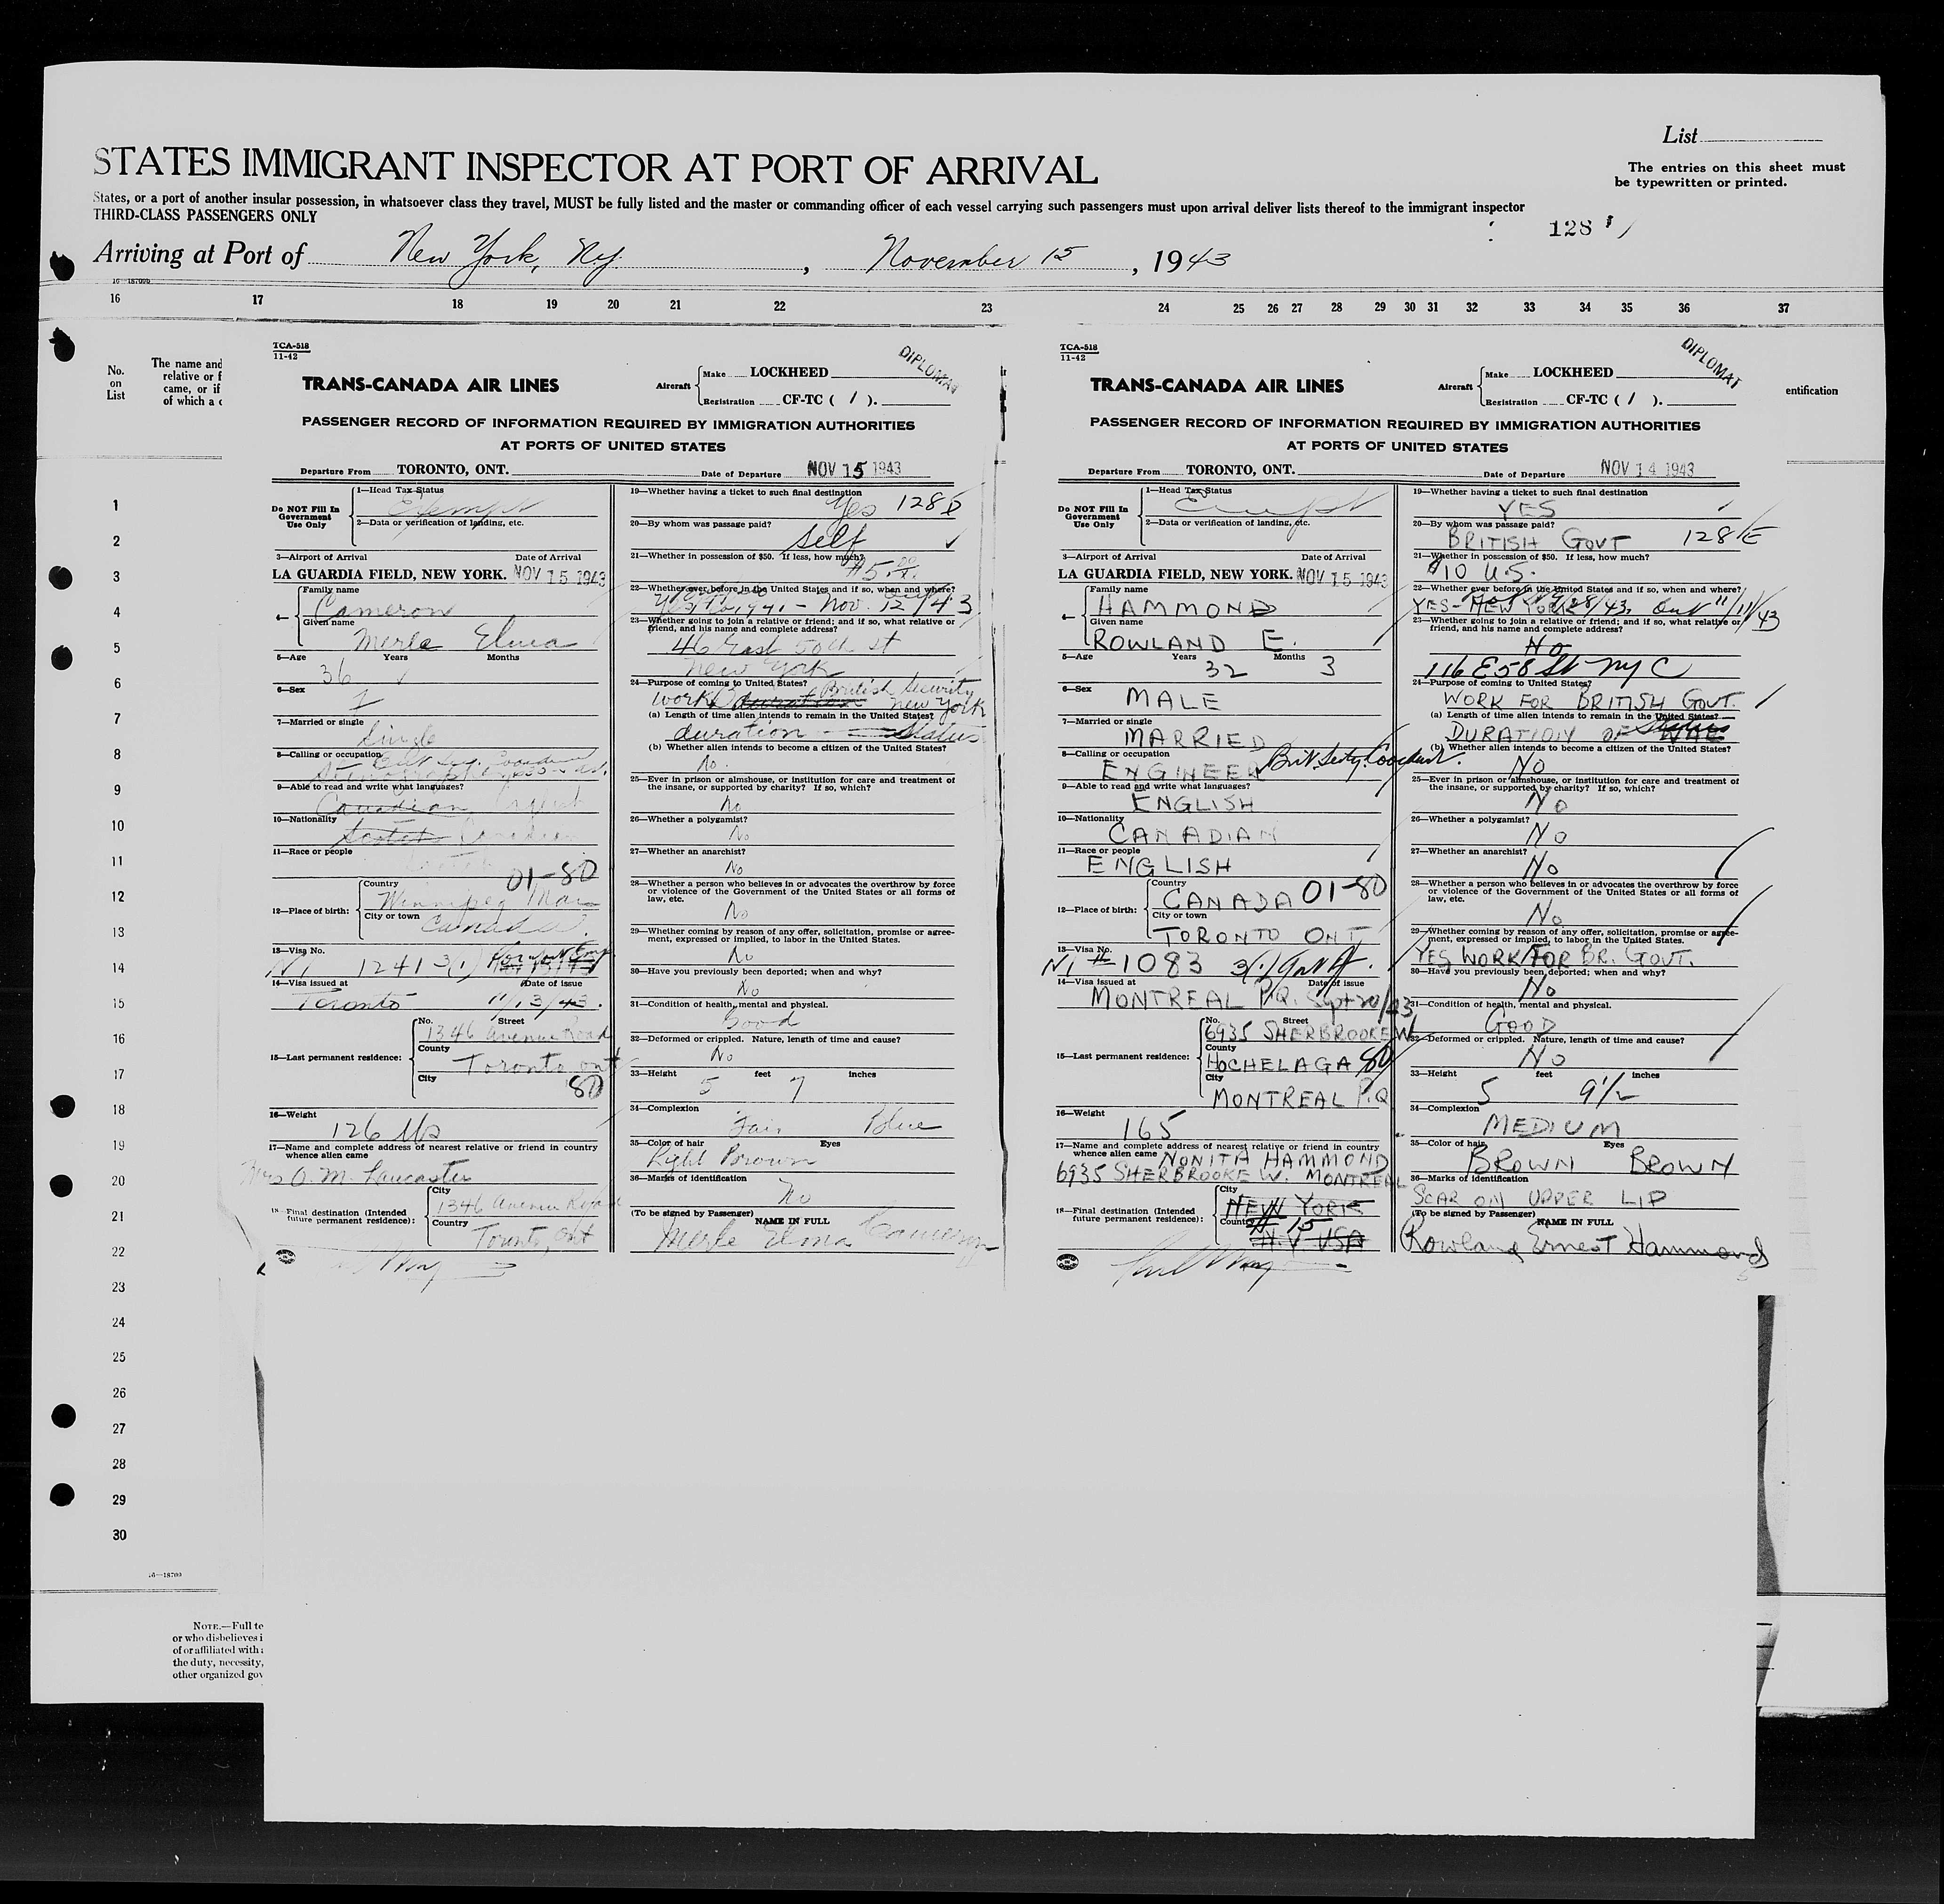 List
STATES IMMIGRANT INSPECTOR AT PORT OF ARRIVAL
The entries on this sheet must
be typewritten or printed.
States, or a port of another insular possession, in whatsoever class they travel, MUST be fully listed and the master or commanding officer of each vessel carrying such passengers must upon arrival deliver lists thereof to the immigrant inspector
THIRD-CLASS PASSENGERS ONLY
128
Arriving at Port of New York, N.Y. , November 15 , 1943
16—18700b
16 17 18 19 20 21 22 23 24 25 26 27 28 29 30 31 32 33 34 35 36 37
No.
on
List
The name and
relative or f
came, or if
of which a c
entification
1
2
3
4
5
6
7
8
9
10
11
12
13
14
15
16
17
18
19
20
21
22
23
24
25
26
27
28
29
30
16—18700
NOTE.—Full te
or who disbelieves i
of or affiliated with
the duty, necessity,
other organized gov
TCA-518
11-42
DIPLOMAT
TRANS-CANADA AIR LINES
Aircraft Make LOCKHEED
Registration CF-TC ( 1 ).
PASSENGER RECORD OF INFORMATION REQUIRED BY IMMIGRATION AUTHORITIES
AT PORTS OF UNITED STATES
Departure From TORONTO, ONT. Date of Departure NOV 15 1943
Do NOT Fill In
Government
Use Only
1—Head Tax Status
Exempt
2—Data or verification of landing, etc.
3—Airport of Arrival Date of Arrival
LA GUARDIA FIELD, NEW YORK. NOV 15 1943
4— Family name
Cameron
Given name
Merle Elma
5—Age Years Months
36
6—Sex
F
7—Married or single
Single
8—Calling or occupation
Stenographer
9—Able to read and write what languages?
Canadian English
10—Nationality
Scotch Canadian
11—Race or people
Scotch
01-80
12—Place of birth: Country
Winnipeg Man
City or town
Canada.
13—Visa No.
1241 3(1)
14—Visa issued at Date of issue
Toronto 11/13/43.
15—Last permanent residence: No. Street
1346 Avenue Road
County
Toronto, ont
City
80
16—Weight
126 lbs
17—Name and complete address of nearest relative or friend in country
whence alien came
Mrs O. M. Lancaster
18—Final destination (Intended
future permanent residence): City
1346 Avenue Road
Country
Toronto, Ont
19—Whether having a ticket to such final destination
Yes 128 D
20—By whom was passage paid?
Self
21—Whether in possession of $50. If less, how much?
$5.00
22—Whether ever before in the United States and if so, when and where?
Nov. 12/43
23—Whether going to join a relative or friend; and if so, what relative or
friend, and his name and complete address?
46 East 50th St
New York
24—Purpose of coming to United States?
work British Security
New York
(a) Length of time alien intends to remain in the United States?
duration Status
(b) Whether alien intends to become a citizen of the United States?
No.
25—Ever in prison or almshouse, or institution for care and treatment of
the insane, or supported by charity? If so, which?
No
26—Whether a polygamist?
No
27—Whether an anarchist?
No
28—Whether a person who believes in or advocates the overthrow by force
or violence of the Government of the United States or all forms of
law, etc.
No
29—Whether coming by reason of any offer, solicitation, promise or agree-
ment, expressed or implied, to labor in the United States.
No
30—Have you previously been deported; when and why?
No
31—Condition of health, mental and physical.
Good
32—Deformed or crippled. Nature, length of time and cause?
No
33—Height feet inches
5 7
34—Complexion
Fair Blue
35—Color of hair Eyes
Light Brown
36—Marks of identification
No
(To be signed by Passenger) NAME IN FULL
Merle Elma Cameron
TCA-518
11-42
DIPLOMAT
TRANS-CANADA AIR LINES
Aircraft Make LOCKHEED
Registration CF-TC ( 1 ).
PASSENGER RECORD OF INFORMATION REQUIRED BY IMMIGRATION AUTHORITIES
AT PORTS OF UNITED STATES
Departure From TORONTO, ONT. Date of Departure NOV 14 1943
Do NOT Fill In
Government
Use Only
1—Head Tax Status
Exempt
2—Data or verification of landing, etc.
3—Airport of Arrival Date of Arrival
LA GUARDIA FIELD, NEW YORK. NOV 15 1943
4— Family name
HAMMOND
Given name
ROWLAND E.
5—Age Years Months
32 3
6—Sex
MALE
7—Married or single
MARRIED
8—Calling or occupation
ENGINEER Brit. Scty. Coordint.
9—Able to read and write what languages?
ENGLISH
10—Nationality
CANADIAN
11—Race or people
ENGLISH
12—Place of birth: Country
CANADA 01-80
City or town
TORONTO ONT
13—Visa No.
# 1083 3(1)
14—Visa issued at Date of issue
MONTREAL P.Q. Sept 20/43
15—Last permanent residence: No. Street
6935 SHERBROOKE W
County
HOCHELAGA 80
City
MONTREAL P.Q.
16—Weight
165
17—Name and complete address of nearest relative or friend in country
whence alien came NONITA HAMMOND
6935 SHERBROOKE W. MONTREAL
18—Final destination (Intended
future permanent residence): City
NEW YORK
Country
15
N.Y USA
19—Whether having a ticket to such final destination
YES
20—By whom was passage paid?
BRITISH GOVT 128 E
21—Whether in possession of $50. If less, how much?
$10 U.S.
22—Whether ever before in the United States and if so, when and where?
YES- NEW YORK 28/43, Out 11/11/43
23—Whether going to join a relative or friend; and if so, what relative or
friend, and his name and complete address?
NO
116 E 58 St NYC
24—Purpose of coming to United States?
WORK FOR BRITISH GOVT.
(a) Length of time alien intends to remain in the United States?
DURATION OF WAR Status
(b) Whether alien intends to become a citizen of the United States?
NO
25—Ever in prison or almshouse, or institution for care and treatment of
the insane, or supported by charity? If so, which?
No
26—Whether a polygamist?
No
27—Whether an anarchist?
No
28—Whether a person who believes in or advocates the overthrow by force
or violence of the Government of the United States or all forms of
law, etc.
No
29—Whether coming by reason of any offer, solicitation, promise or agree-
ment, expressed or implied, to labor in the United States.
YES WORK FOR BR. GOVT.
30—Have you previously been deported; when and why?
No
31—Condition of health, mental and physical.
GOOD
32—Deformed or crippled. Nature, length of time and cause?
No
33—Height feet inches
5 9 1/2
34—Complexion
MEDIUM
35—Color of hair Eyes
BROWN BROWN
36—Marks of identification
SCAR ON UPPER LIP
(To be signed by Passenger) NAME IN FULL
Rowland Ernest Hammond